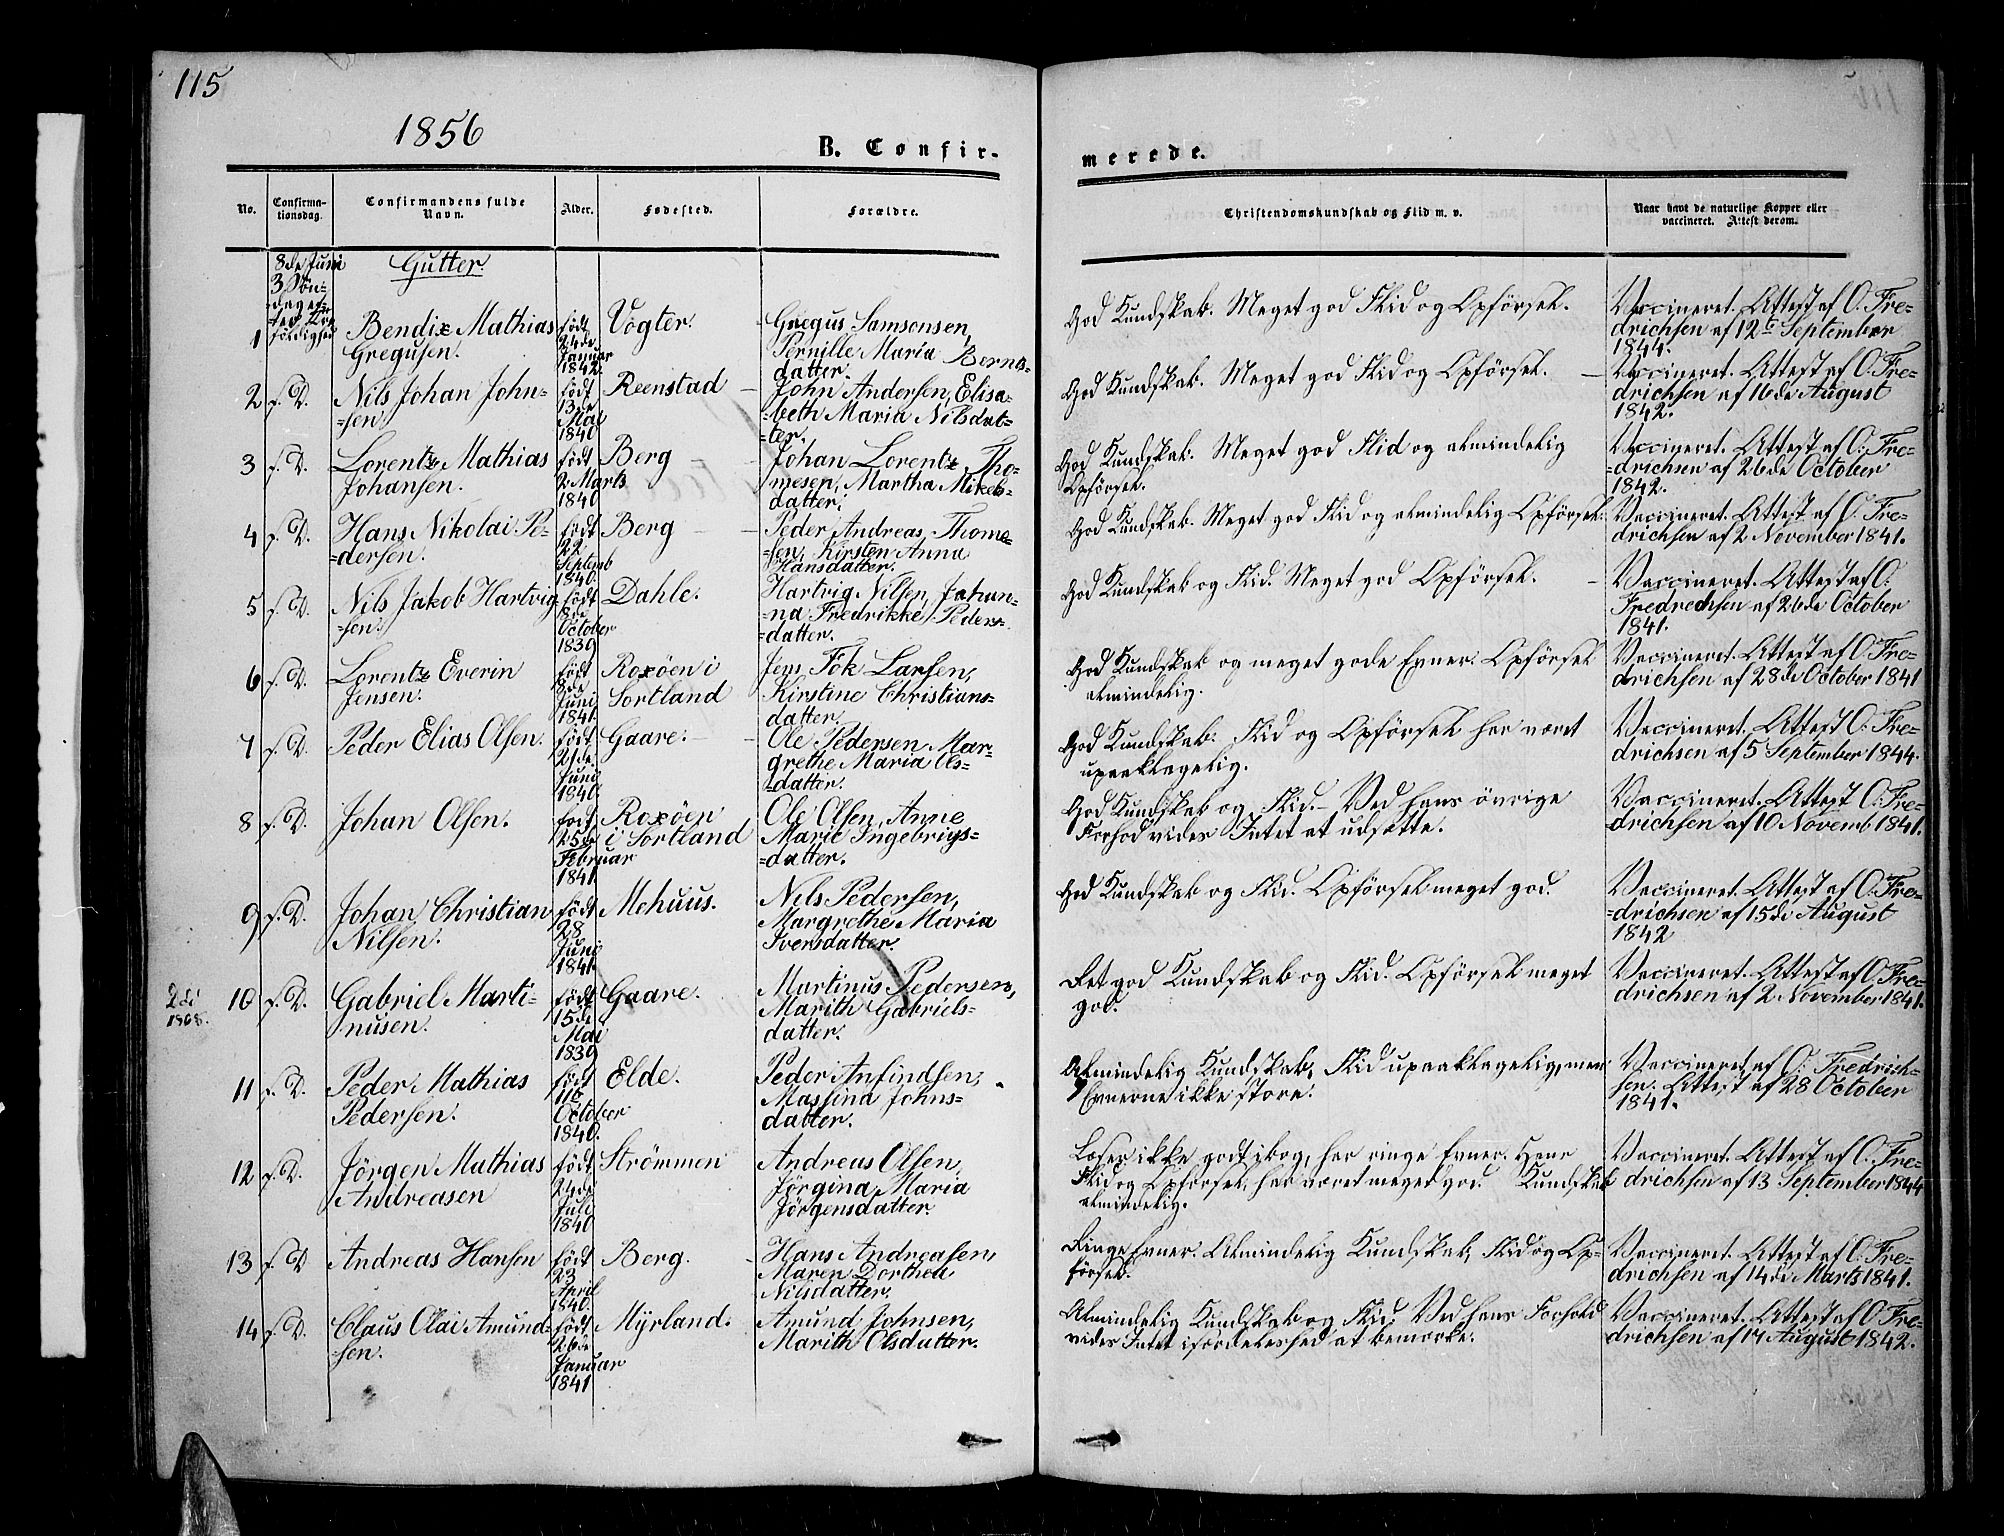 115
1856
B. Confir-
merede.
No.
Confirma-
tionsdag.
Confirmandens fulde
Navn.
Alder.
Fødested.
Forældre.
Christendomskundskab og Flid m. v.
Naar havt de naturlige Kopper eller
vaccineret. Attest derom.
8de Juni
3 Søn-
Gutter.
1
Bendix Mathias
Gregusen.
født
24de
Januar
1842.
Vogter.
Gregus Samsonsen,
Pernille Maria Bernts-
datter.
God Kundskab. Meget god Flid og Opförsel.
Vaccineret. Attest af O. Fre-
drichsen af 12te September
1844.
2
f. D.
Nils Johan John-
=sen.
født
13de
Mai
1840
Reenstad
John Andersen, Elisa-
=beth Maria Nilsdat-
=ter.
God Kundskab. Meget god Flid og Opförsel.
Vaccineret. Attest af O. Fre-
drichsen af 16de August
1842.
3
f. D.
Lorentz Mathias
Johansen.
født
2 Marts
1840
Berg
Johan Lorentz Tho-
mesen, Martha Mikels-
datter;
God Kundskab. Meget god Flid og almindelig
Opförsel.
Vaccineret. Attest af O. Fre-
=drichsen af 26de October
1842.
4
f. D.
Hans Nikolai Pe-
=dersen.
født
22
Septemb
1840.
Berg
Peder Andreas Thome-
=sen, Kirsten Anna
Hansdatter.
God Kundskab. Meget god Flid og almindelig Opförsel.
Vaccineret. Attest af O. Fre-
drichsen af 2 November 1841.
5
f. D.
Nils Jakob Hartvig-
=sen.
født
8de
October
1839
Dahle.
Hartvig Nilsen, Johan-
=na Fredrikke Peders-
=datter.
God Kundskab og Flid. Meget god Opförsel.
Vaccineret. Attest af O.
Fredrechsen af 26de October
1841.
6
f. D.
Lorentz Everin
Jensen.
født
8de
Juni
1841.
Roxöen i
Sortland
Jens Fok Larsen,
Kirstine Christians-
datter.
God Kundskab og meget gode Evner. Opförsel
almindelig.
Vaccineret. Attest af O. Fre-
drichsen af 28de October 1841
7
f. D.
Peder Elias Olsen.
født
21de
Juni
1840.
Gaare.
Ole Pedersen Mar-
grethe Maria Ols-
=datter.
God Kundskab. Flid og Opförsel har været
upaaklagelig.
Vaccineret. Attest O. Fre-
drichsen af 5 September 1844.
8
f. D.
Johan Olsen.
født
25de
Februar
1841.
Roxöen
i Sortland
Ole Olsen, Anne
Marie Ingebrigs-
=datter.
God Kundskab og Flid. Ved hans övrige
Forhod vides Intet at udsætte.
Vaccineret. Attest O. Fre-
=drichsen af 10 Novemb 1841.
9
f. D.
Johan Christian
Nilsen.
født
28
Juni
1841.
Mehuus.
Nils Pedersen,
Margrethe Maria
Iversdatter.
God Kundskab og Flid. Opförsel meget god.
Vaccineret. Attest af O. Fre-
=drichsen af 15de August
1842
10
f. D.
Gabriel Marti-
nusen.
født
15de
Mai
1839
Gaare.
Martinus Pedersen,
Marith Gabriels-
datter.
Ret god Kundskab og Flid. Opförsel meget
god.
Vaccineret. Attest af O. Fre-
drichsen af 2 November 1841.
11
f. D.
Peder Mathias
Pedersen.
født
11te
October
1840.
Elde.
Peder Anfindsen,
Massina Johns-
datter.
Almindelig Kundskab, Flid upaaklagelig, men
Evnerne ikke store.
Vaccineret af O. Fredrich-
sen. Attest af 28 October
1841.
12
f. D.
Jörgen Mathias
Andreasen
født
24de
Juli
1840
Strömmen
Andreas Olsen,
Jörgina Maria
Jörgensdatter.
Læser ikke godt i bog, har ringe Evner. Hans
Flid og Opförsel, har været meged god. Kundskab
almindelig.
Vaccineret. Attest af O. Fre-
drichsen af 13 September 1844
13
f. D
Andreas Hansen
født
23
April
1840.
Berg.
Hans Andreasen,
Maren Dorthea
Nilsdatter.
Ringe Evner. Almindelig Kundskab, Flid og Op-
försel.
Vaccineret. Attest af O. Fre-
drichsen af 14de Marts 1841.
14
f. D.
Claus Olai Amund-
sen.
født
26de
Januar
1841
Myrland.
Amund Johnsen,
Marith Olsdatter.
Almindelig Kundskab og Flid. Ved hans Forhold
vides Intet ifordeleshed at bemærke.
Vaccineret. Attest af O Fre-
drichsen af 17 August 1842.